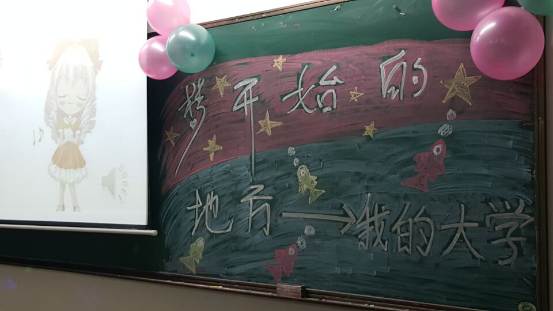 梦开始的
地方→我的大学